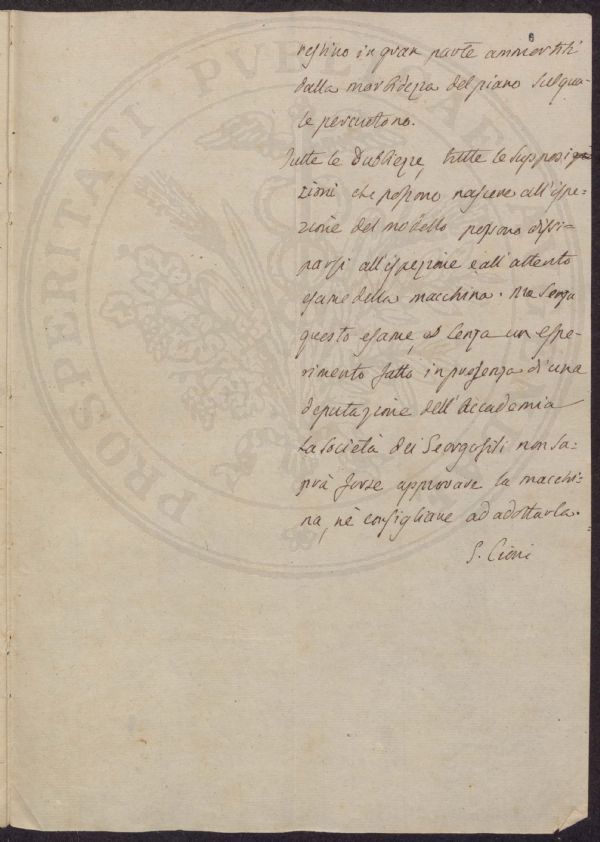 6
restino in gran parte ammortiti
dalla morbidezza del piano sul qua-
le percuotono.
Tutte le dubbiezze, tutte le supposi
zioni che possono nascere all'ispe-
zione del modello possono dissi-
parsi all'ispezione e all'attento
esame della macchina. Ma senza
questo esame, e senza un espe-
rimento fatto in presenza d'una
deputazione dell'Accademia
la Società dei Georgofili non sa-
prà forse approvare la macchi-
na, nè consigliare ad adottarla.
G. Cioni
PROSPERITATI PUBLICAE